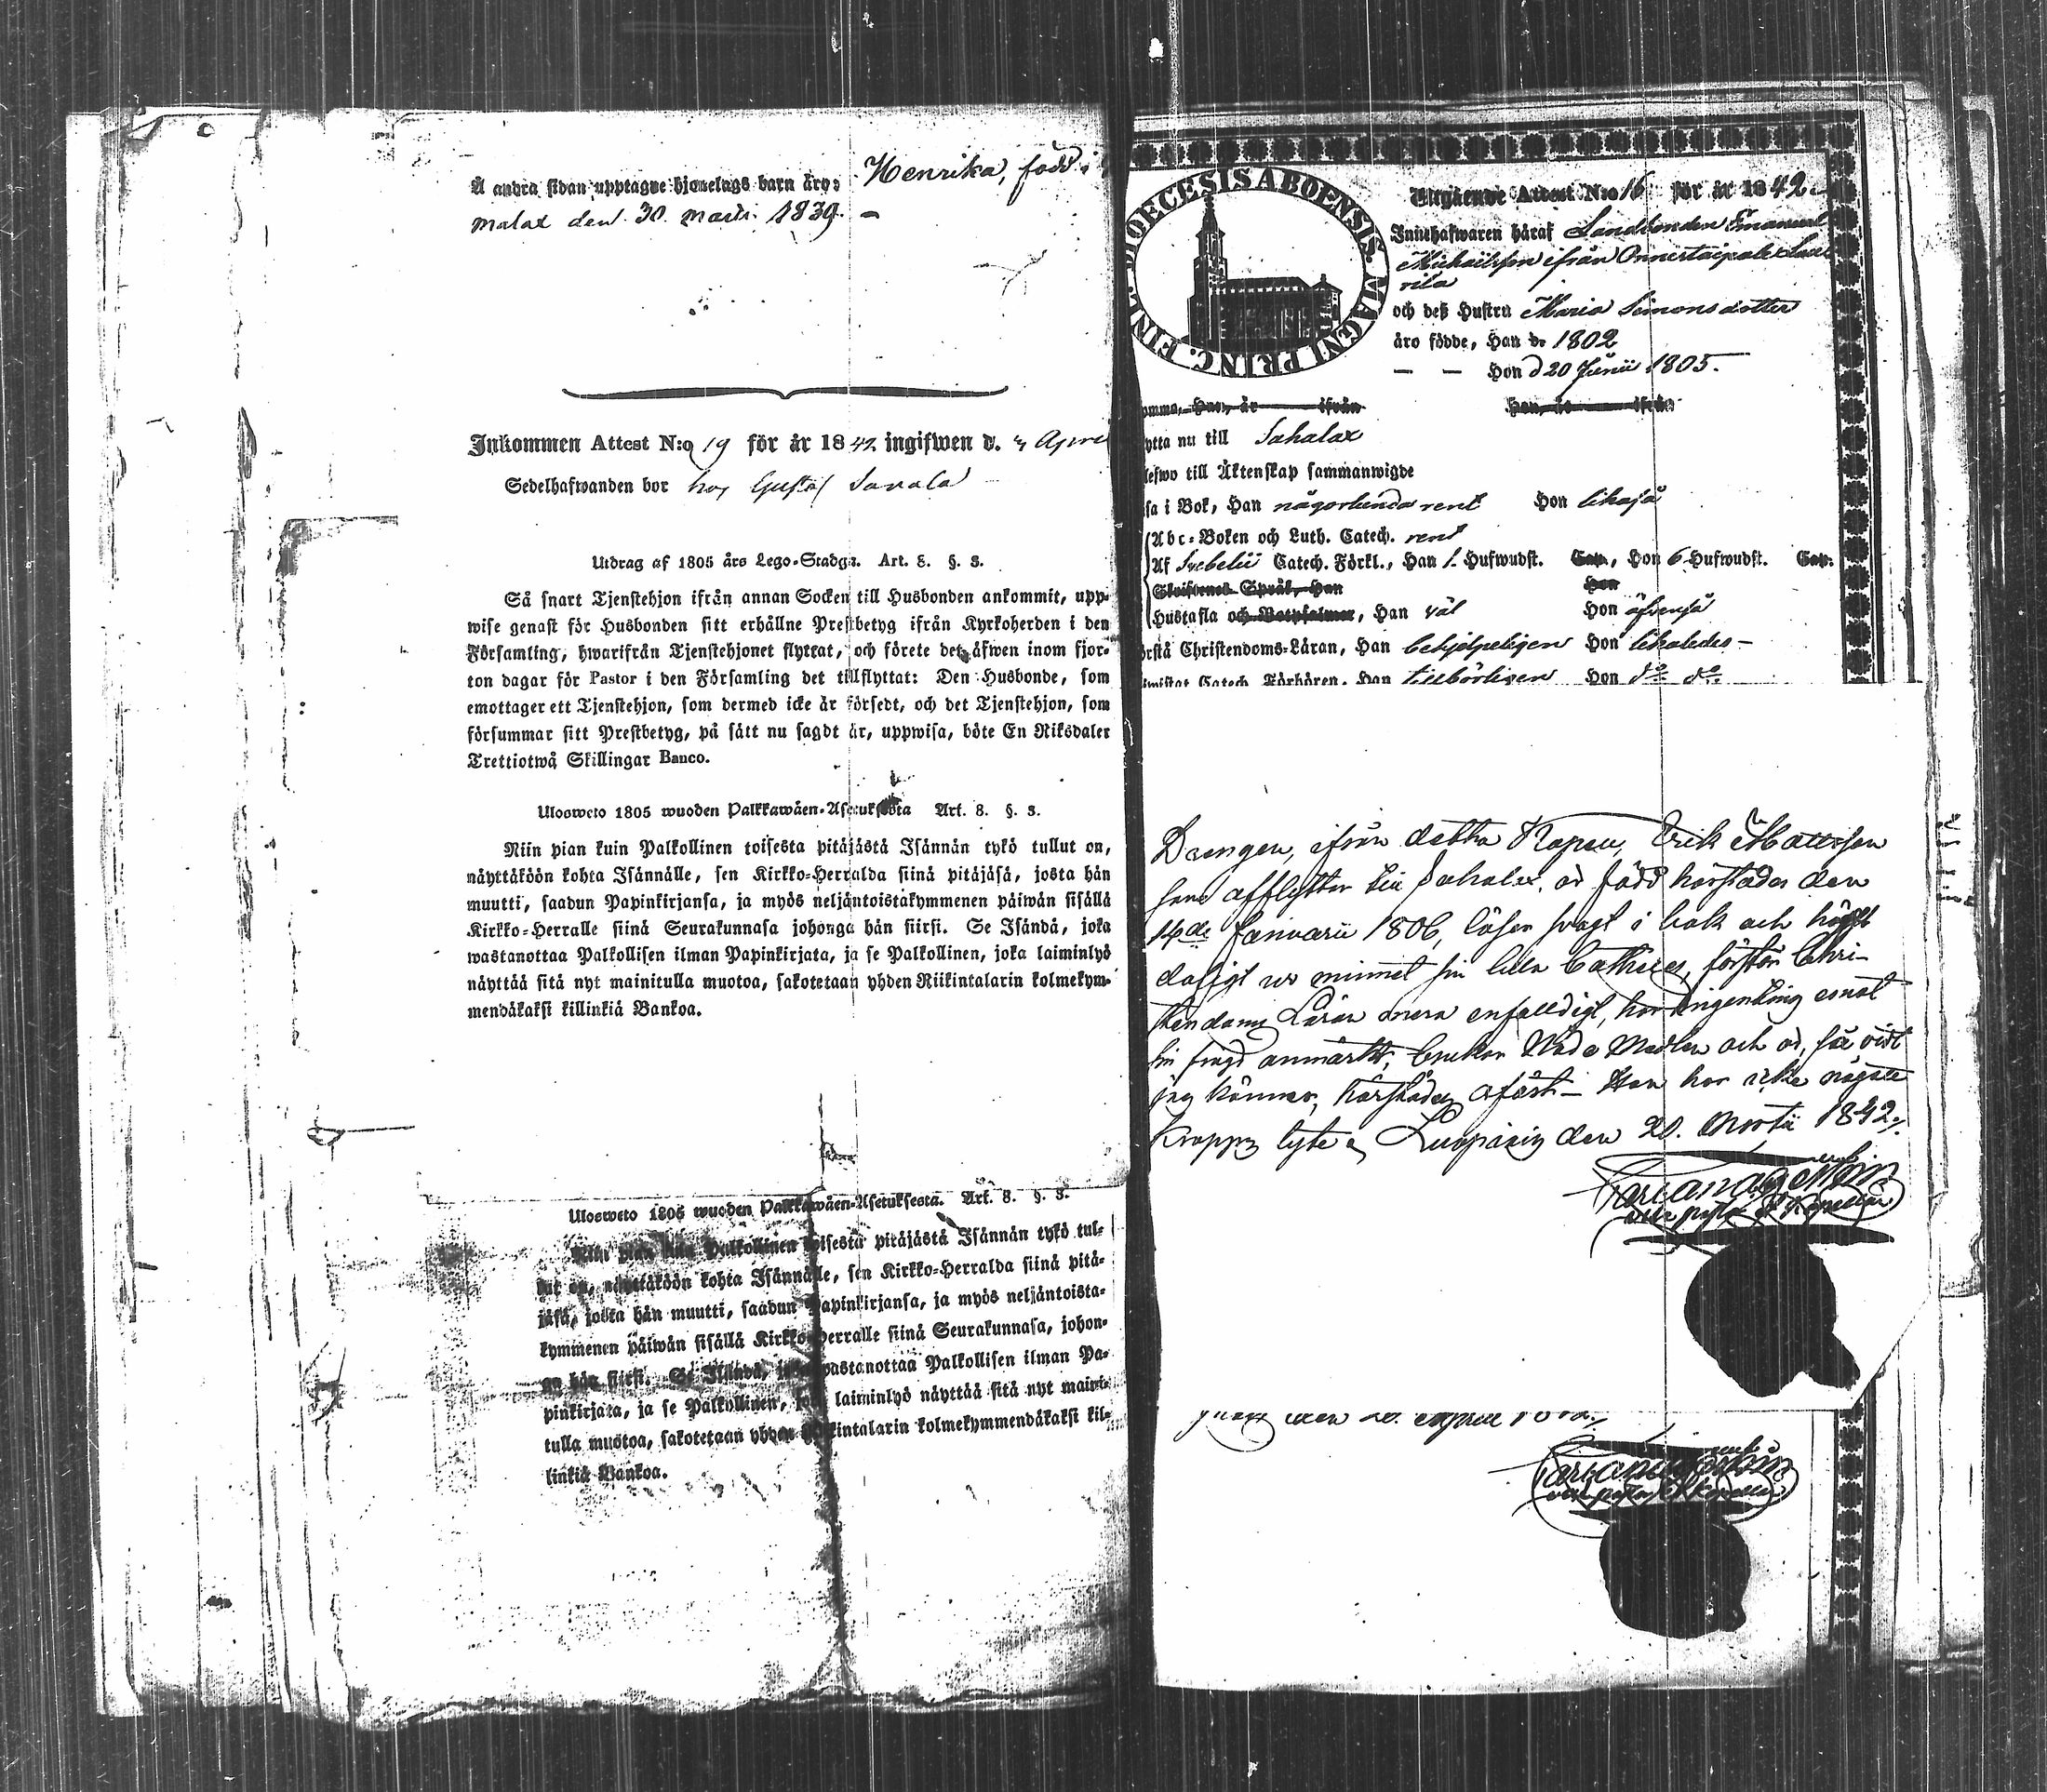 Å andra sidan upptagne hjonelags barn äro: Henrika, född i
malax den 30 martii 1839.
Inkommen Attest N:o 19 för år 1842 ingifwen d. 4 April
Sedelhafwanden bor hos Gustaf Savala
Utdrag af 1805 års Lego-Stadga. Art. 8. §. 3.
Så snart Tjenstehjon ifrån annan Socken till Husbonden ankommit, upp-
wise genast för Husbonden sitt erhållne Prestbetyg ifrån Kyrkoherden i den
Församling, hwarifrån Tjenstehjonet flyttat, och förete det äfwen inom fjor-
ton dagar för Pastor i den Församling det tillflyttat: Den Husbonde, som
emottager ett Tjenstehjon, som dermed icke är försedt, och det Tjenstehjon, som
försummar sitt Prestbetyg, på sätt nu sagdt är, uppwisa, böte En Riksdaler
Trettiotwå Skillingar Banco.
Ulosweto 1805 wuoden Palkkawäen-Asetuksesta Art. 8. §. 3.
Niin pian kuin Palkollinen toisesta pitäjästä Isännän tykö tullut on,
näyttäköön kohta Isännälle, sen Kirkko-Herralda siinä pitäjäsä, josta hän
muutti, saadun Papinkirjansa, ja myös neljäntoistakymmenen päiwän sisällä
Kirkko-Herralle siinä Seurakunnasa johonga hän siirsi. Se Isändä, joka
wastanottaa Palkollisen ilman Papinkirjata, ja se Palkollinen, joka laiminlyö
näyttää sitä nyt mainitulla muotoa, sakotetaan yhden Riikintalarin kolmekym-
mendäkaksi killinkiä Bankoa.
Ulosweto 1805 wuoden Palkkawäen-Asetuksesta. Art. 8. §. 3.
Niin pian kuin Palkollinen toisesta pitäjästä Isännän tykö tul-
lut on, näyttäköön kohta Isännälle, sen Kirkko-Herralda siinä pitä-
jäsä, josta hän muutti, saadun Papinkirjansa, ja myös neljäntoista-
kymmenen päiwän sisällä Kirkko-Herralle siinä Seurakunnasa, johon-
ga hän siirsi. Se Isändä, joka wastanottaa Palkollisen ilman Pa-
pinkirjata, ja se Palkollinen, joka laiminlyö näyttää sitä nyt maini-
tulla muotoa, sakotetaan yhden Riikintalarin kolmekymmendäkaksi kil-
linkiä Bankoa.
DIOECESIS ABOENSIS. MAGNI PRINC. FINL.
Utgående Attest N:o 16 för år 1842
Innehafwaren häraf Landbonden Emanuel
Michaelsson ifrån Onnistaipale
och deß Hustru Maria Simonsdotter
äro födde, Han d. 1802
— — Hon d 20 Junii 1805.
omma, Han, är ifrån Hon, är ifrån
ytta nu till Sahalax
lefwo till Äktenskap sammanwigde
sa i Bok, Han någorlunda rent Hon likaså
Abc-Boken och Luth. Catech. rent
Af Svebelii Catech. Förkl., Han 1. Hufwudst. Cap., Hon 6 Hufwudst. Cap.
Skriftenes Språk, Han Hon
Hustafla och Botpsalmer, Han väl Hon äfvenså
örstå Christendoms-Läran, Han behjelpeligen Hon likaledes
Catech. Förhören, Han tillbörligen Hon do do
Drengen, ifrån detta Kapell, Erik Mattsson
som afflyttar till Sahalax, är född härstädes den
14de Januarii 1806, läser svagt i bok och högst
dåligt ur minnet sin lilla Cathes, förstår Chri-
stendoms Läran mera enfalldigt, har ingenting emot
sin frejd anmärkt, brukar Nåde Medlen och är, så vidt
jag känner, härstädes ofäst. Han har icke någott
kropps lyte. Luopiois den 20. Martii 1842.